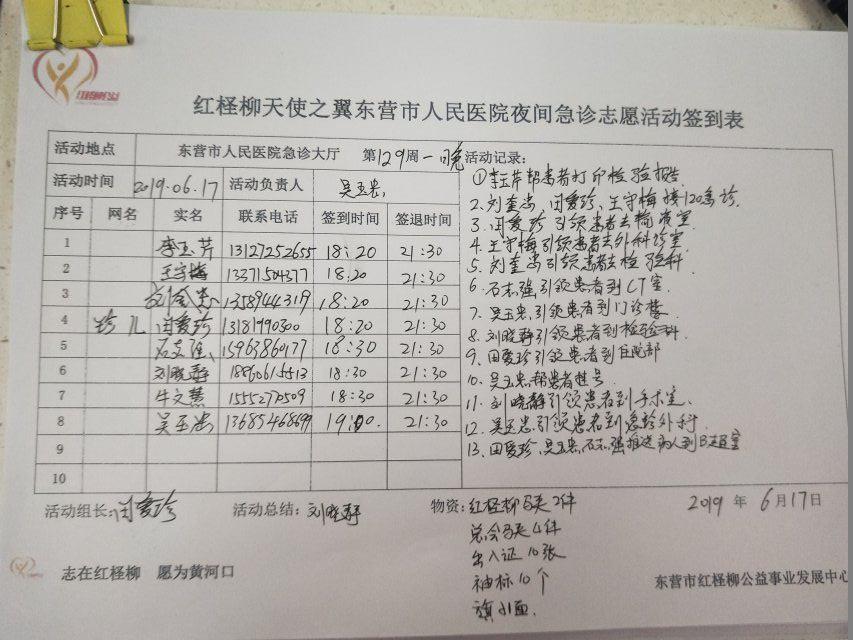 红柽柳天使之翼东营市人民医院夜间急诊志愿活动签到表
活动地点 东营市人民医院急诊大厅 第129周一晚
活动时间 2019.06.17 活动负责人 吴玉忠
序号 网名 实名 联系电话 签到时间 签退时间
1 李玉芹 13127252655 18:20 21:30
2 王守梅 13371504377 18:20 21:30
3 刘奎忠 13589444319 18:20 21:30
4 珍儿 闫爱珍 13181990300 18:20 21:30
5 石志强 15963860177 18:30 21:30
6 刘晓静 18:30 21:30
7 牛文慧 18:30 21:30
8 吴玉忠 13685468699 19:00 21:30
9
10
活动记录:
①李玉芹帮患者打印检验报告
2. 刘奎忠、闫爱珍、王守梅接120急诊
3. 闫爱珍引领患者去输液室
4. 王守梅引领患者去外科诊室
5. 刘奎忠引领患者去检验科
6. 石志强引领患者到CT室
7. 吴玉忠引领患者到门诊楼
8. 刘晓静引领患者到检验科
9. 闫爱珍引领患者到住院部
10. 吴玉忠帮患者挂号
11. 刘晓静引领患者到手术室
12. 吴玉忠引领患者到急诊外科
13. 闫爱珍、吴玉忠、石志强推送病人到B超室
活动组长:闫爱珍 活动总结:刘晓静 物资:红柽柳马夹2件
总会马夹4件
出入证10张
袖标10个
旗小1面
2019年6月17日
志在红柽柳 愿为黄河口
东营市红柽柳公益事业发展中心